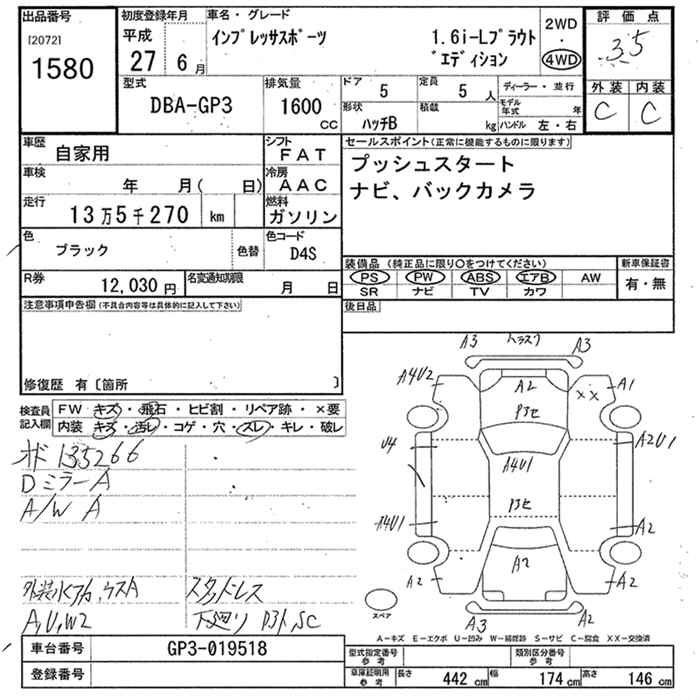 出品番号
[2072]
1580
初度登録年月
平成
27 6 月
車名・グレード
インプレッサスポーツ
1.6i-Lプラウト
゛エディション
2WD
・
4WD
評価点
3.5
外装 内装
C C
型式
DBA-GP3
排気量
1600
CC
ドア
5
定員
5 人
形状
ハッチB
積載
kg
ディーラー・並行
モデル年式 年
ハンドル 左・右
車歴
自家用
シフト
FAT
車検
年 月( 日)
冷房
AAC
走行
13万5千270 km
燃料
ガソリン
色
ブラック
色替
色コード
D4S
R券
12,030 円
名変通知期限
月 日
セールスポイント(正常に機能するものに限ります)
プッシュスタート
ナビ、バックカメラ
装備品(純正品に限り○をつけてください)
PS PW ABS エアB AW
SR ナビ TV カワ
新車保証書
有・無
後日品
注意事項申告欄(不具合内容等は具体的に記入して下さい)
修復歴 有〔箇所 〕
検査員
記入欄
FW キズ・飛石・ヒビ割・リペア跡・×要
内装 キズ・汚レ・コゲ・穴・スレ・キレ・破レ
135266
Dミラー A
A/W A
スタッドレス
A,U,W2
下廻り
A3 A3
A4U2 A2 A1
XX
U4 A4U1 A2U1
A4U1 A2
A2 A2 A2
A3 A2
スペア
A－キズ E－エクボ U－凹み W－補修跡 S－サビ C－腐食 XX－交換済
車台番号
GP3-019518
登録番号
型式指定番号
参考
類別区分番号
参考
車庫証明用
参考
長さ 442 cm 幅 174 cm 高さ 146 cm